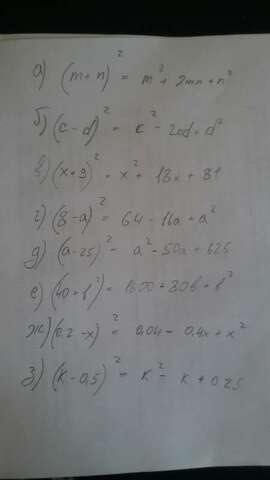 а) (m+n)² = m² + 2mn + n²
б) (c-d)² = c² - 2cd + d²
в) (x+9)² = x² + 18x + 81
г) (8-a)² = 64 - 16a + a²
д) (a-25)² = a² - 50a + 625
е) (40+b)² = 1600 + 80b + b²
ж) (0.2-x)² = 0.04 - 0.4x + x²
з) (k-0,5)² = k² - k + 0.25